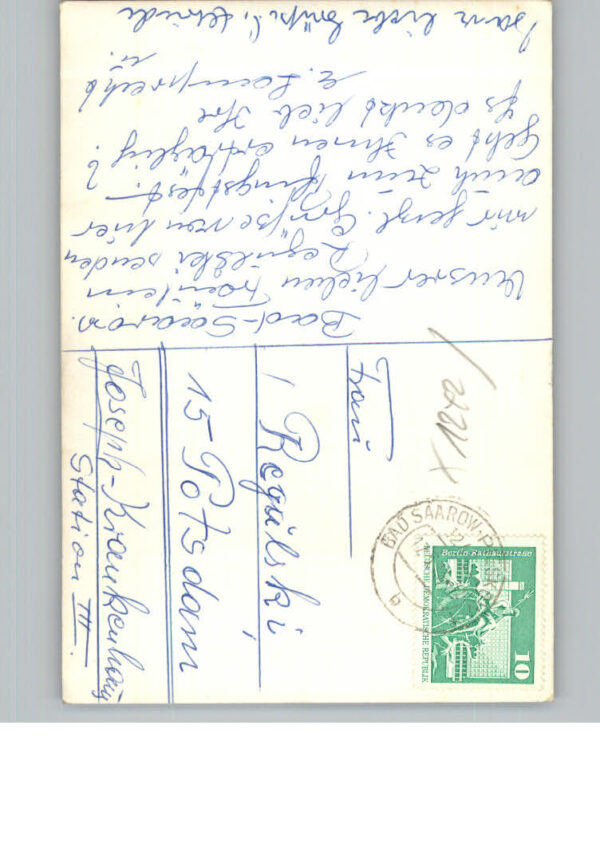 Bad-Saarow.
Unsrer lieben Fräulein
Regulski senden
wir herzl. Grüße von hier
auch zum Pfingstfest.
Geht es Ihnen erträglich?
Es denkt lieb Ihre
E. Lamprecht
u.
Frau
Regulski
15 Potsdam
Joseph-Krankenhaus
Station III.
BAD SAAROW-
b
Berlin-Rathausstraße
DEUTSCHE DEMOKRATISCHE REPUBLIK
10